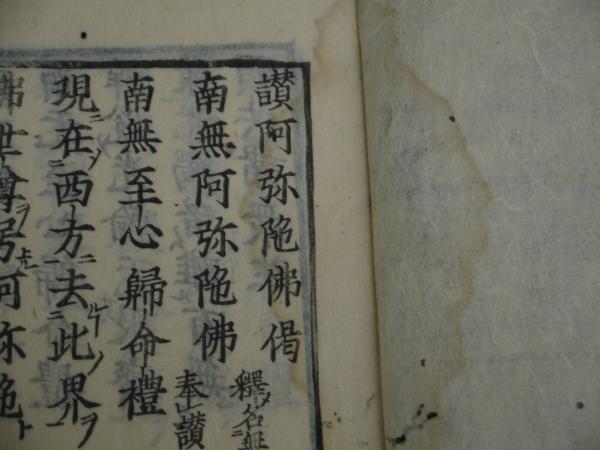 讃阿弥陀佛偈
南無阿弥陀佛
釋名無
奉讃
南無至心歸命禮
現在西方去此界
佛世尊号阿弥陀